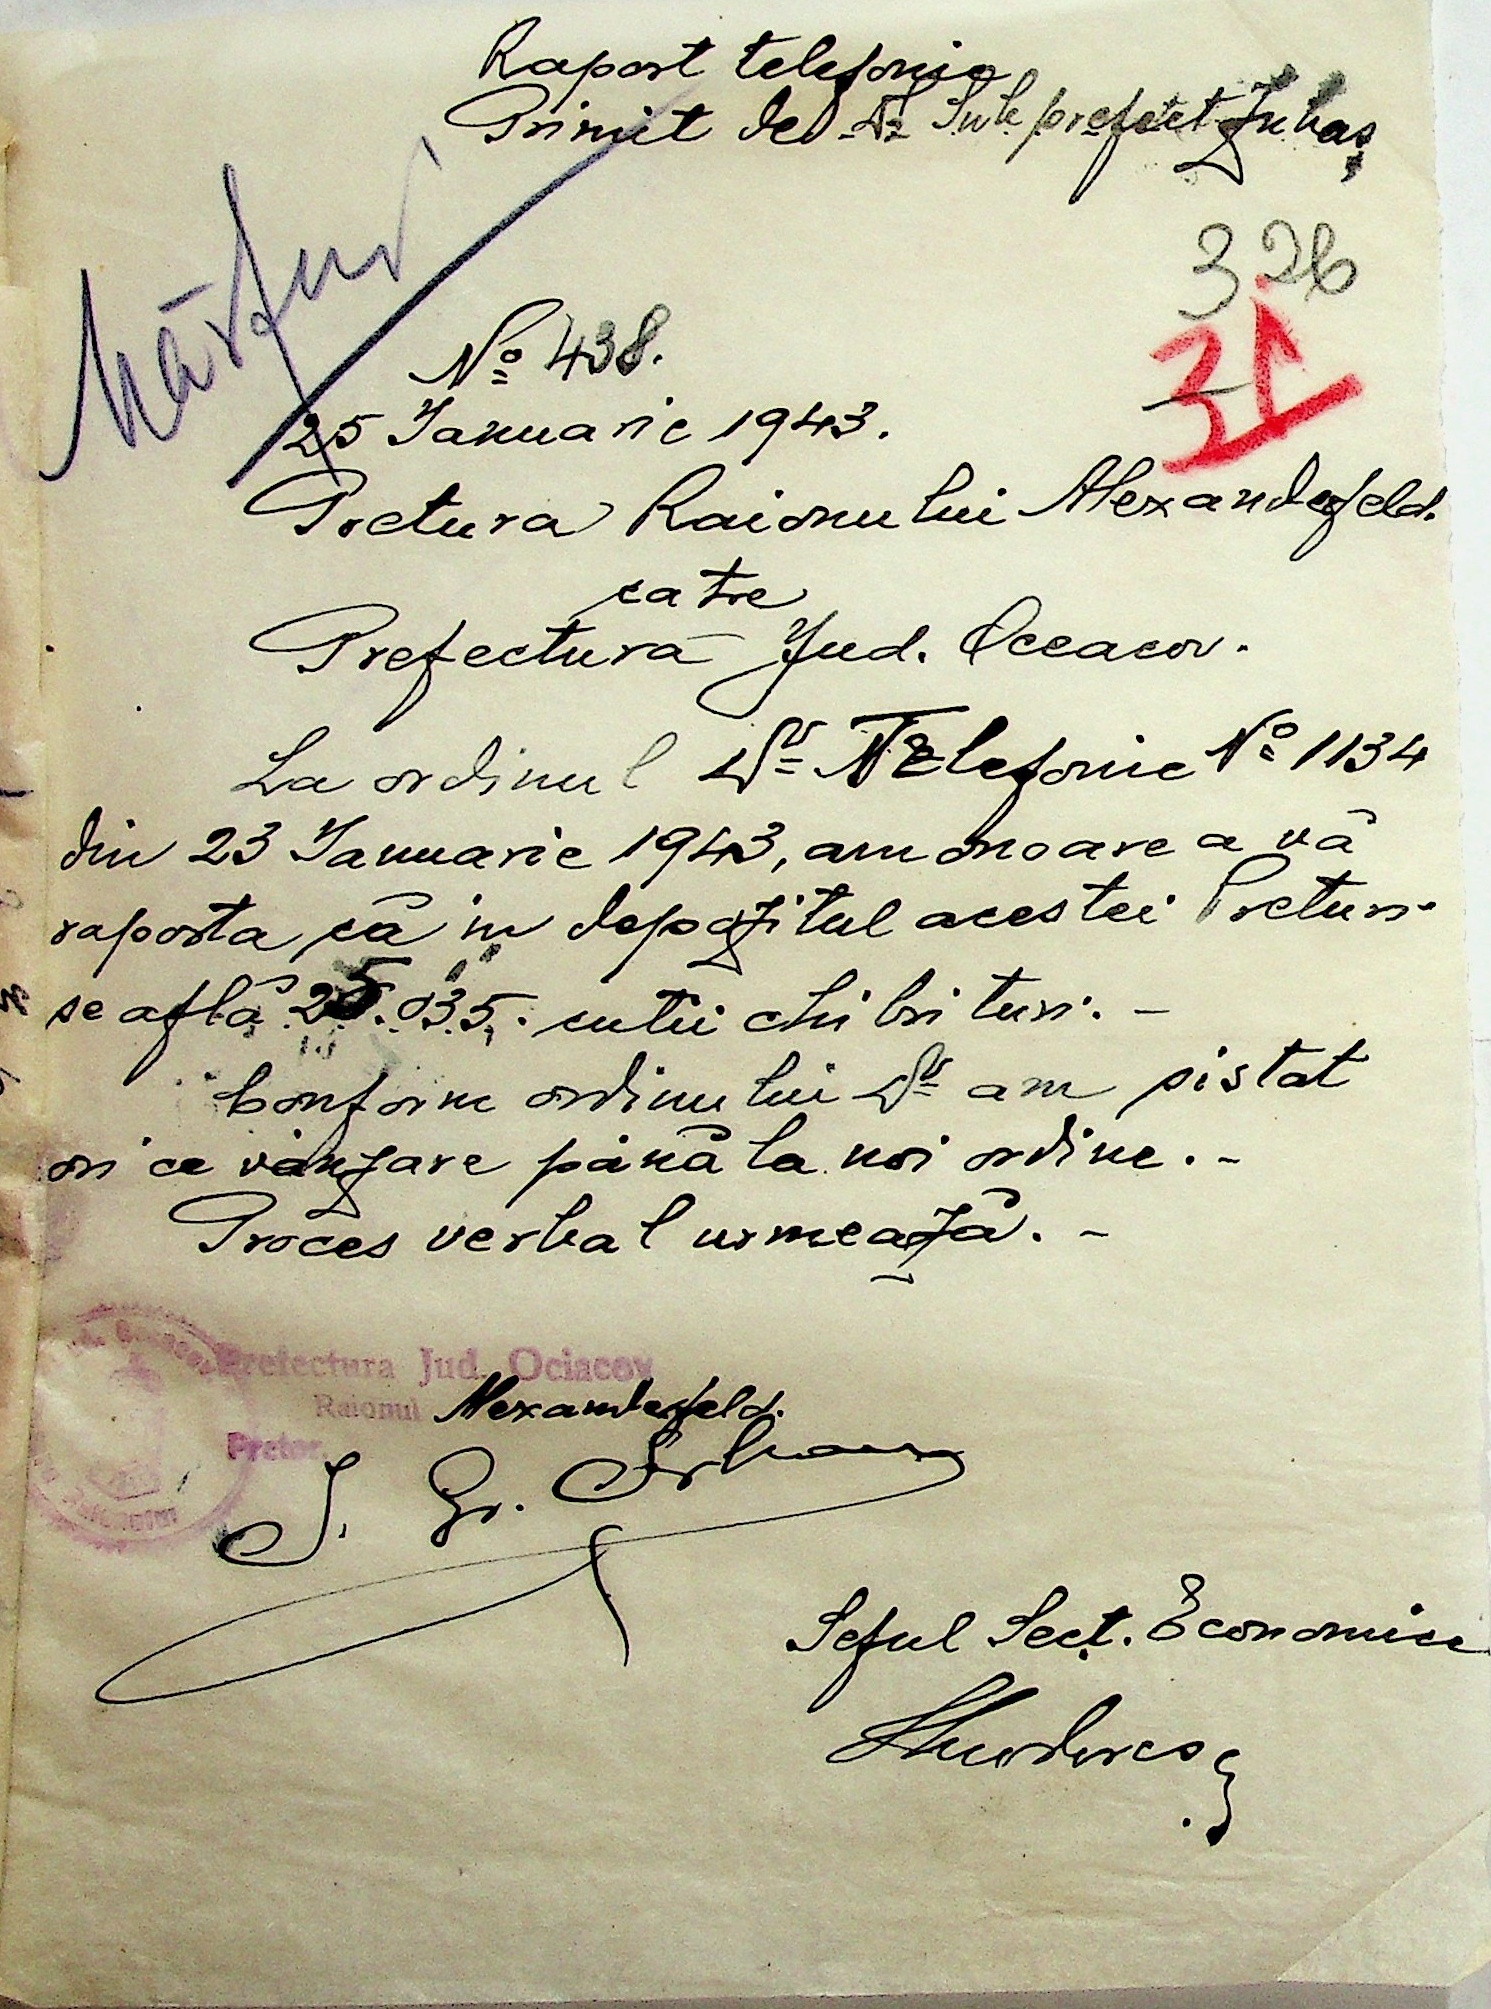 Raport telefonic
Primit de Dl Sub prefect Juhaș
Mărfuri
326
31
No 438.
25 Ianuarie 1943.
Pretura Raionului Alexanderfeld.
catre
Prefectura Jud. Oceacov.
La ordinul Dv Telefonic No 1134
din 23 Ianuarie 1943, am onoare a vă
raporta că in depozitul acestei Preturi
se află 25.035. cutii chibrituri. -
Conform ordinului Dv am sistat
ori ce vânzare până la noi ordine. -
Proces verbal urmează. -
Prefectura Jud. Ociacov
Raionul Alexanderfeld.
Pretor
I. Gr.
Seful Sect. Economice